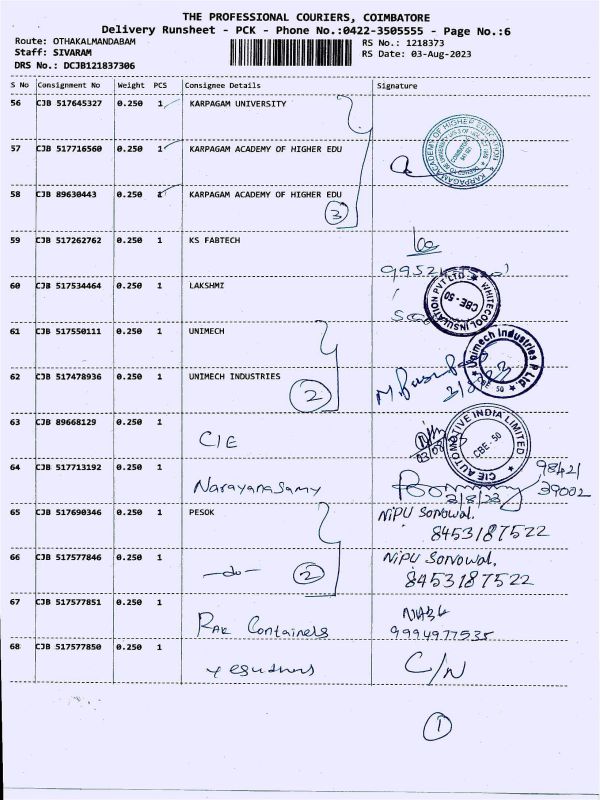 THE PROFESSIONAL COURIERS, COIMBATORE
Delivery Runsheet - PCK - Phone No.:0422-3505555 - Page No.:6
Route: OTHAKALMANDABAM RS No.: 1218373
Staff: SIVARAM RS Date: 03-Aug-2023
DRS No.: DCJB121837306
S No Consignment No Weight PCS Consignee Details Signature
56 CJB 517645327 0.250 1 KARPAGAM UNIVERSITY
57 CJB 517716560 0.250 1 KARPAGAM ACADEMY OF HIGHER EDU
KARPAGAM ACADEMY OF HIGHER EDUCATION
58 CJB 89630443 0.250 KARPAGAM ACADEMY OF HIGHER EDU
3
59 CJB 517262762 0.250 1 KS FABTECH
60 CJB 517534464 0.250 1 LAKSHMI
WHITECOOL INSULATION PVT LTD. CBE - 50
61 CJB 517550111 0.250 1 UNIMECH
Unimech Industries P Ltd. CBE 50
62 CJB 517478936 0.250 1 UNIMECH INDUSTRIES
2
63 CJB 89668129 0.250 1 CIE
03/08/23
CIE AUTOMOTIVE INDIA LIMITED CBE - 50
64 CJB 517713192 0.250 1 Narayanasamy
98421
39002
65 CJB 517690346 0.250 1 PESOK NiPU Sonowal.
8453187522
66 CJB 517577846 0.250 1 -do- 2 NiPU Sonowal.
8453187522
67 CJB 517577851 0.250 1 Containers
9994977535
68 CJB 517577850 0.250 1 C/N
1